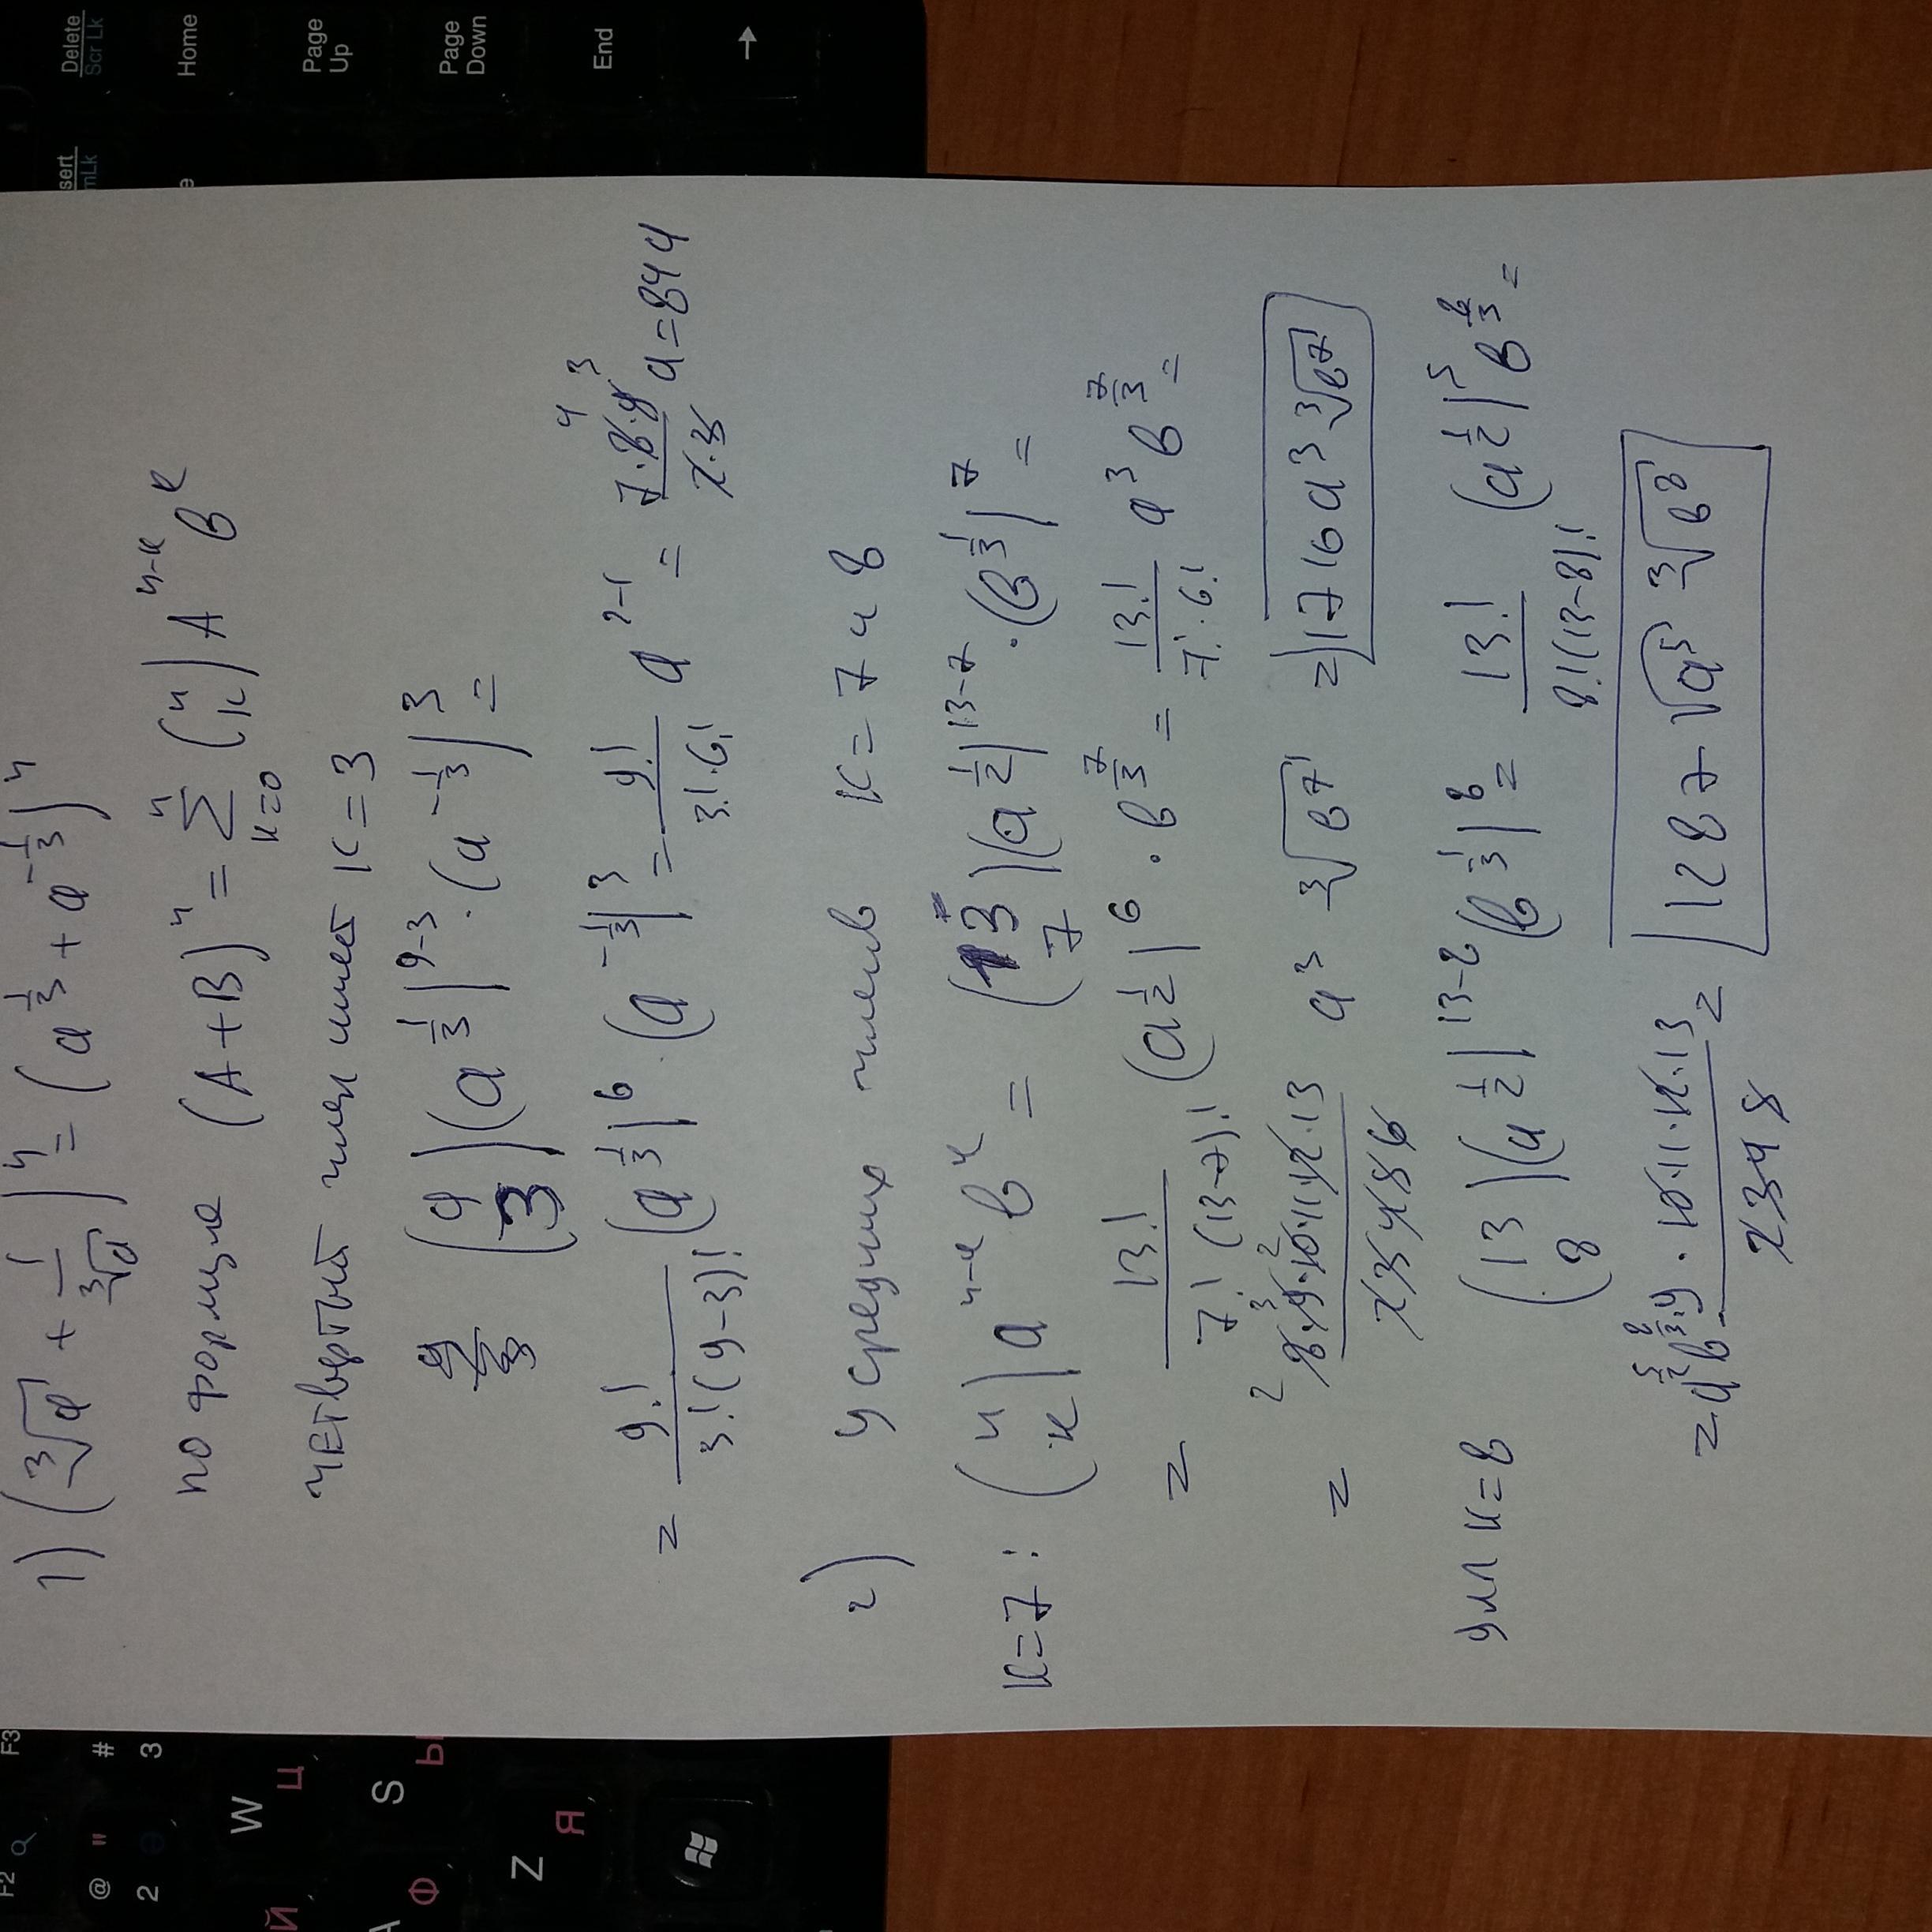 1) (∛a + 1/∛a)ⁿ = (a^(1/3) + a^(-1/3))ⁿ
по формуле (A+B)ⁿ = Σ_(k=0)^n (n k) A^(n-k) B^k
четвертый член имеет k=3
(9 3)(a^(1/3))^(9-3) · (a^(-1/3))^3 =
= 9!/(3!(9-3)!) (a^(1/3))^6 · (a^(-1/3))^3 = 9!/(3!·6!) a^(2-1) = (7·8·9)/(2·3) a = 844
2) У средних членов k=7 и 8
k=7: (n k) a^(n-k) b^k = (13 7)(a^(1/2))^(13-7) · (b^(1/3))^7 =
= 13!/(7!(13-7)!) (a^(1/2))^6 · b^(7/3) = 13!/(7!·6!) a^3 b^(7/3) =
= (8·9·10·11·12·13)/(2 3 4 5 6) a^3 ∛b^7 = 1716 a^3 ∛b^7
для k=8 (13 8)(a^(1/2))^(13-8) (b^(1/3))^8 = 13!/(8!(13-8)!) (a^(1/2))^5 b^(8/3) =
= a^(5/2) b^(8/3) · (9·10·11·12·13)/(2 3 4 5) = 1287 √a^5 ∛b^8
Delete
Scr Lk
Home
Page
Up
Page
Down
End
→
sert
mLk
e
F2
F3
@ "
2
#
3
W Ц
Й
S Ы
A Ф
Z Я